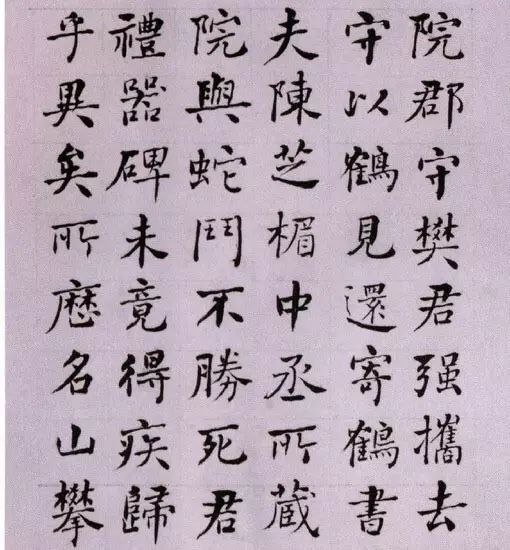 院郡守樊君强攜去
守以鶴見還寄鶴書
夫陳芝楣中丞所蔵
院與蛇鬥不勝死君
禮器碑未竟得疾歸
乎異矣所歴名山攀